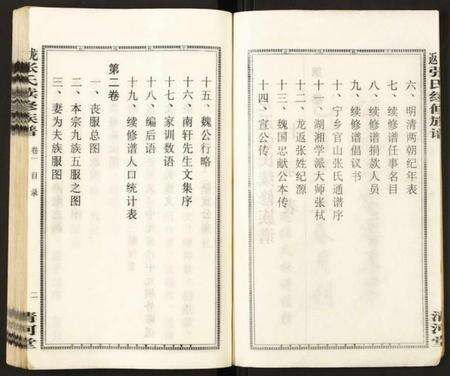 六、明清两朝纪年表
七、续修谱任事名目
八、续修谱捐款人员
九、续修谱倡议书
十、宁乡官山张氏通谱序
十一、湖湘学派大师张栻
十二、龙返张姓纪源
十三、魏国忠献公本传
十四、宣公传
张氏续修族谱
清河堂
十五、魏公行略
十六、南轩先生文集序
十七、家训数语
十八、编后语
十九、续修谱人口统计表
第二卷
一、丧服总图
二、本宗九族五服之图
三、妻为夫族服图
张氏续修族谱
卷一
目录
二
清河堂